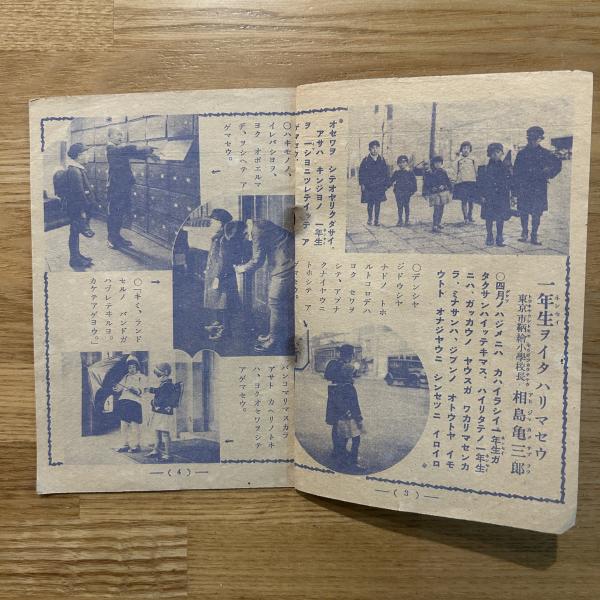 一年生ヲイタハリマセウ
東京市鞆絵小學校長 相島亀三郎
〇四月ノハジメニハ カハイラシイ一年生ガ
タクサンハイッテキマス。ハイリタテノ一年生
ニハ、ガッカウノ ヤウスガ ワカリマセンカ
ラ、ミナサンハ、ジブンノ オトウトヤ イモ
ウトト オナジヤウニ シンセツニ イロイロ
オセワヲ シテオヤリクダサイ。
アサハ キンジヨノ 一年生
ヲ 一シヨニツレテイッテ ア
ゲマセウ。
〇デンシヤ
ジドウシヤ
ナドノ トホ
ルトコロデハ
ヨク セワヲ
シテ、アブナ
クナイヤウニ
トホシテ ア
ゲマセウ。
—(3)—
〇ハキモノノ、
イレバシヨヲ、
ヨク オボエルマ
デ、ヲシヘテ ア
ゲマセウ。
〇「キミ、ランド
セルノ バンドガ
ハヅレテキルヨ。
カケテアゲヨウ。」
バンコマリマスカラ
アサト カヘリノトキ
ハ、ヨクオセワヲシテ
アゲマセウ。
—(4)—